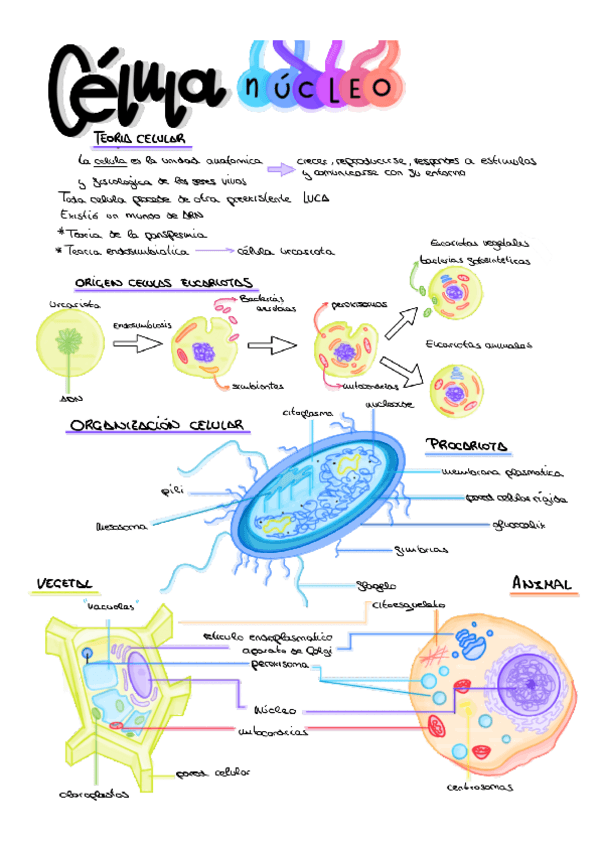 Célula NÚCLEO
TEORIA CELULAR
La celula es la unidad anatomica
y fisiologica de los seres vivos
crecer, reproducirse, responder a estimulos
y comunicarse con su entorno
Toda celula procede de otra preexistente LUCA
Existió un mundo de ARN
* Teoria de la panspermia
* Teoria endosimbiotica → célula urcariota
ORIGEN CELULAS EUCARIOTAS
Urcariota
ADN
Endosimbiosis
Bacterias
simbiontes
peroxisomas
mitocondrias
Eucariotas vegetales
bacterias fotosintéticas
Eucariotas animales
ORGANIZACIÓN CELULAR
PROCARIOTA
citoplasma
nucleoide
membrana plasmatica
pared celular rígida
glucocalix
fimbrias
flagelo
pili
mesosoma
VEGETAL
ANIMAL
"vacuolas"
citoesqueleto
reticulo endoplasmatico
aparato de Golgi
peroxisoma
Núcleo
mitocondrias
pared celular
cloroplastos
centrosomas